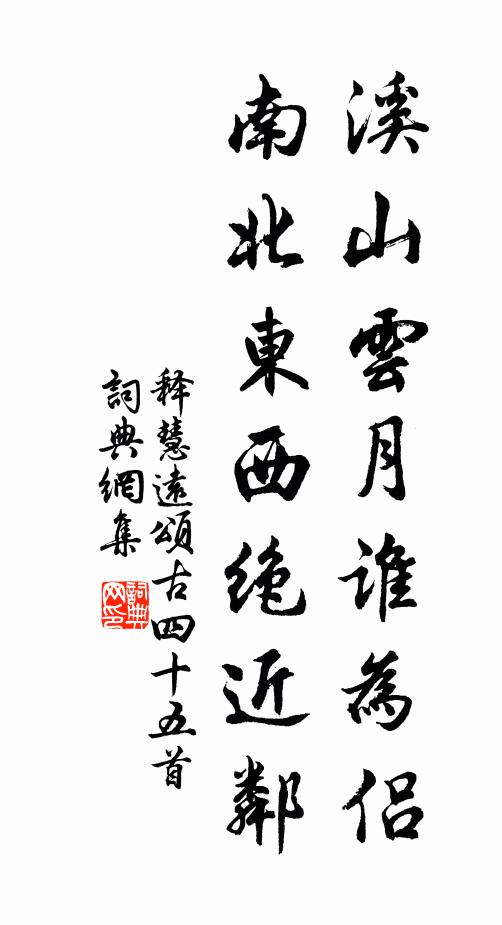 溪山雲月誰為侶
南北東西绝近鄰
释慧遠頌古四十五首
詞典網集
詞典网印